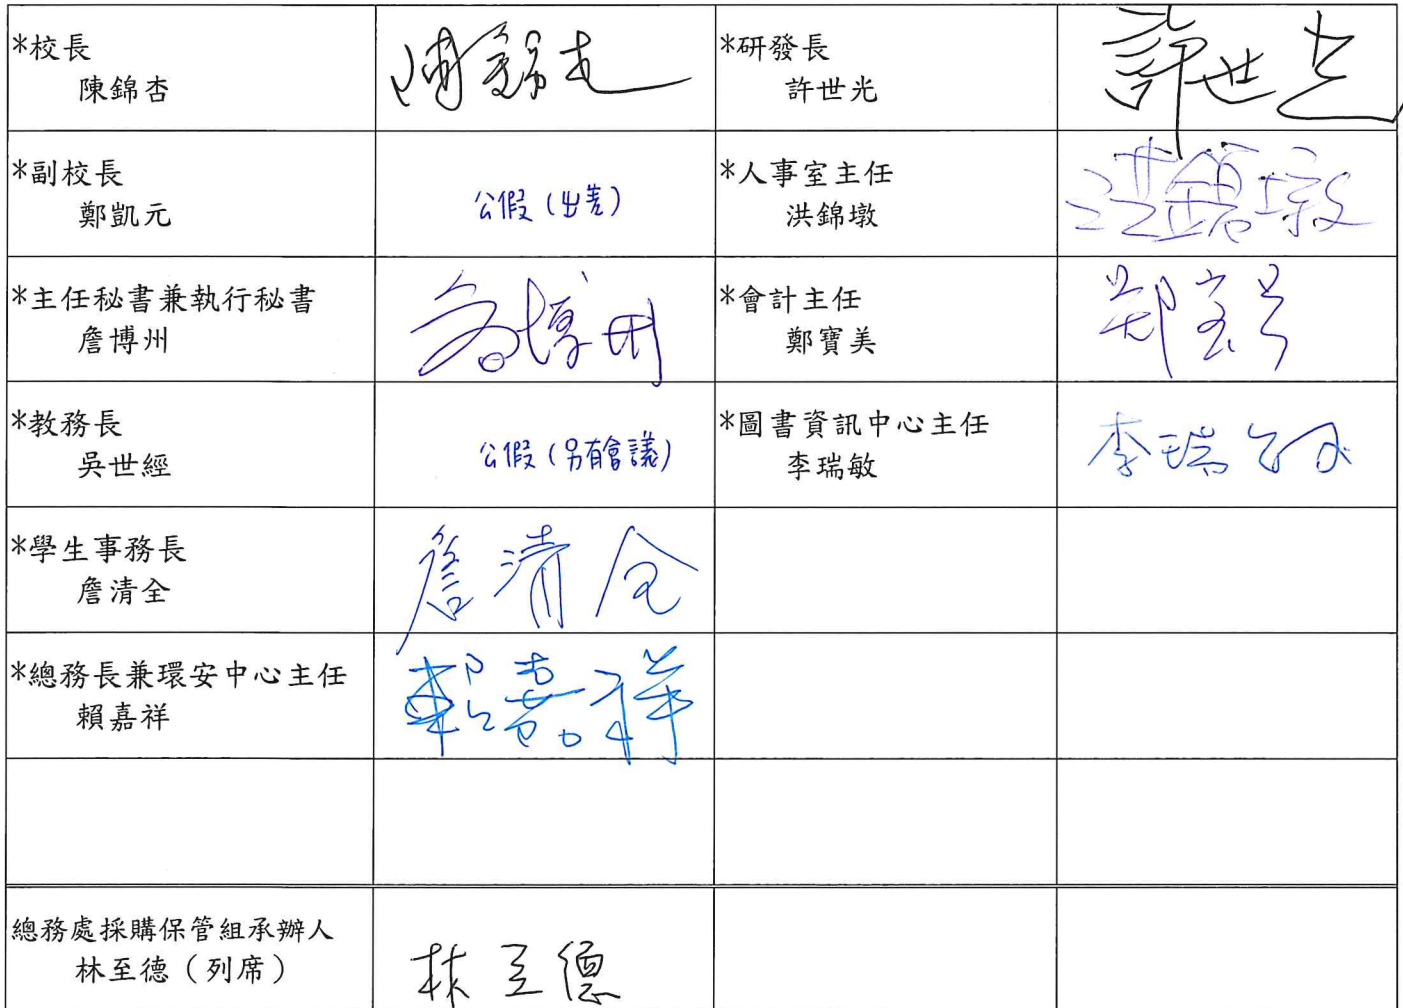 *校長
陳錦杏
陳錦杏
*研發長
許世光
許世光
*副校長
鄭凱元
公假(出差)
*人事室主任
洪錦墩
洪錦墩
*主任秘書兼執行秘書
詹博州
詹博州
*會計主任
鄭寶美
鄭寶美
*教務長
吳世經
公假(另有會議)
*圖書資訊中心主任
李瑞敏
李瑞敏
*學生事務長
詹清全
詹清全
*總務長兼環安中心主任
賴嘉祥
賴嘉祥
總務處採購保管組承辦人
林至德(列席)
林至德